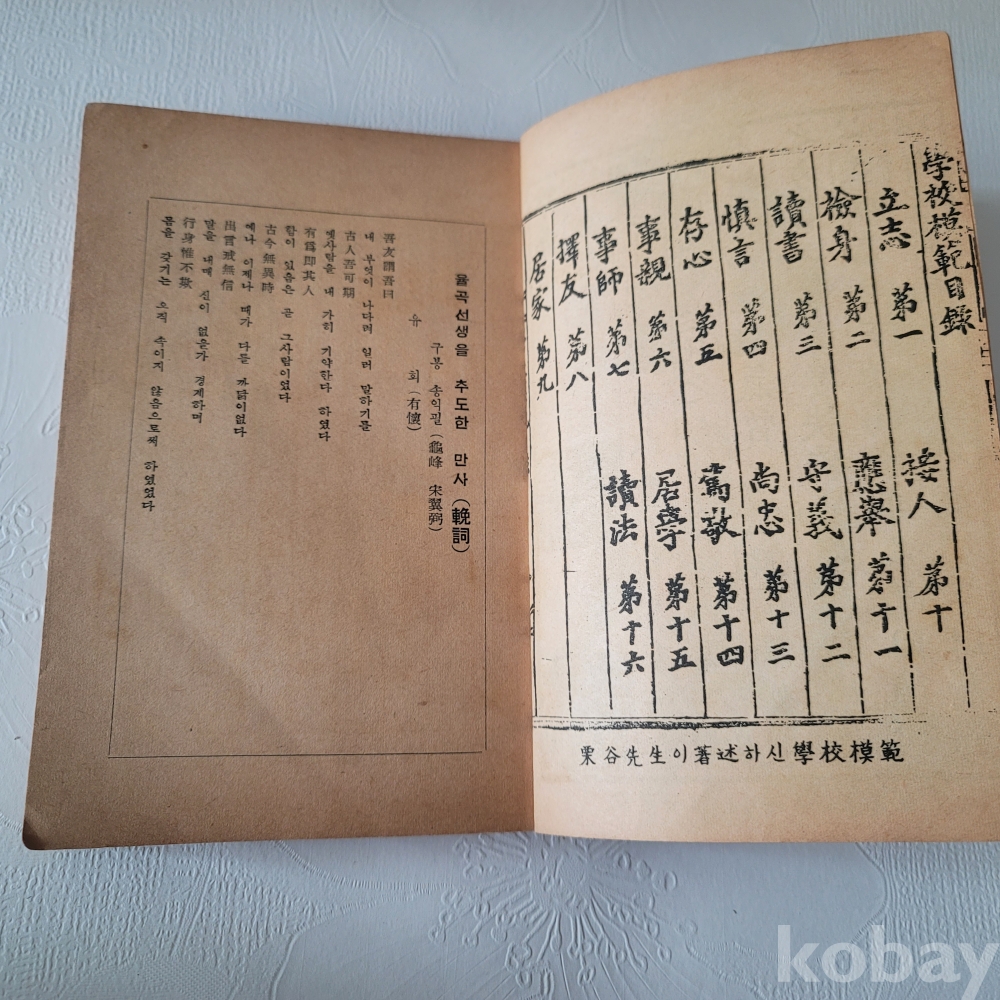 學校模範目錄
立志 第一
檢身 第二
讀書 第三
慎言 第四
存心 第五
事親 第六
事師 第七
擇友 第八
居家 第九
接人 第十
應擧 第十一
守義 第十二
尚忠 第十三
篤敬 第十四
居學 第十五
讀法 第十六
栗谷先生이著述하신學校模範
율곡선생을 추도한 만사 (輓詞)
구봉 송익필 (龜峰 宋翼弼)
유 회 (有懷)
吾友謂吾曰
내 부엇이 나다려 일러 말하기를
古人吾可期
옛사람을 내 가히 기약한다 하였다
有爲即其人
함이 있음은 곧 그사람이었다
古今無異時
예나 이제나 때가 다를 까닭이없다
出言戒無信
말을 내매 신이 없을가 경계하며
行身惟不欺
몸을 갖기는 오직 속이지 않음으로써 하였었다
kobay